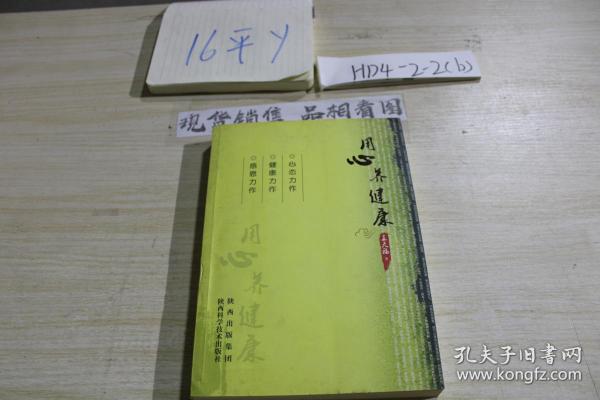 16平y
HD4-2-2(b)
现货销售 品相看图
用心养健康
◎心态力作
◎健康力作
◎感恩力作
用心养健康
陕西出版集团
陕西科学技术出版社
孔夫子旧书网
www.kongfz.com